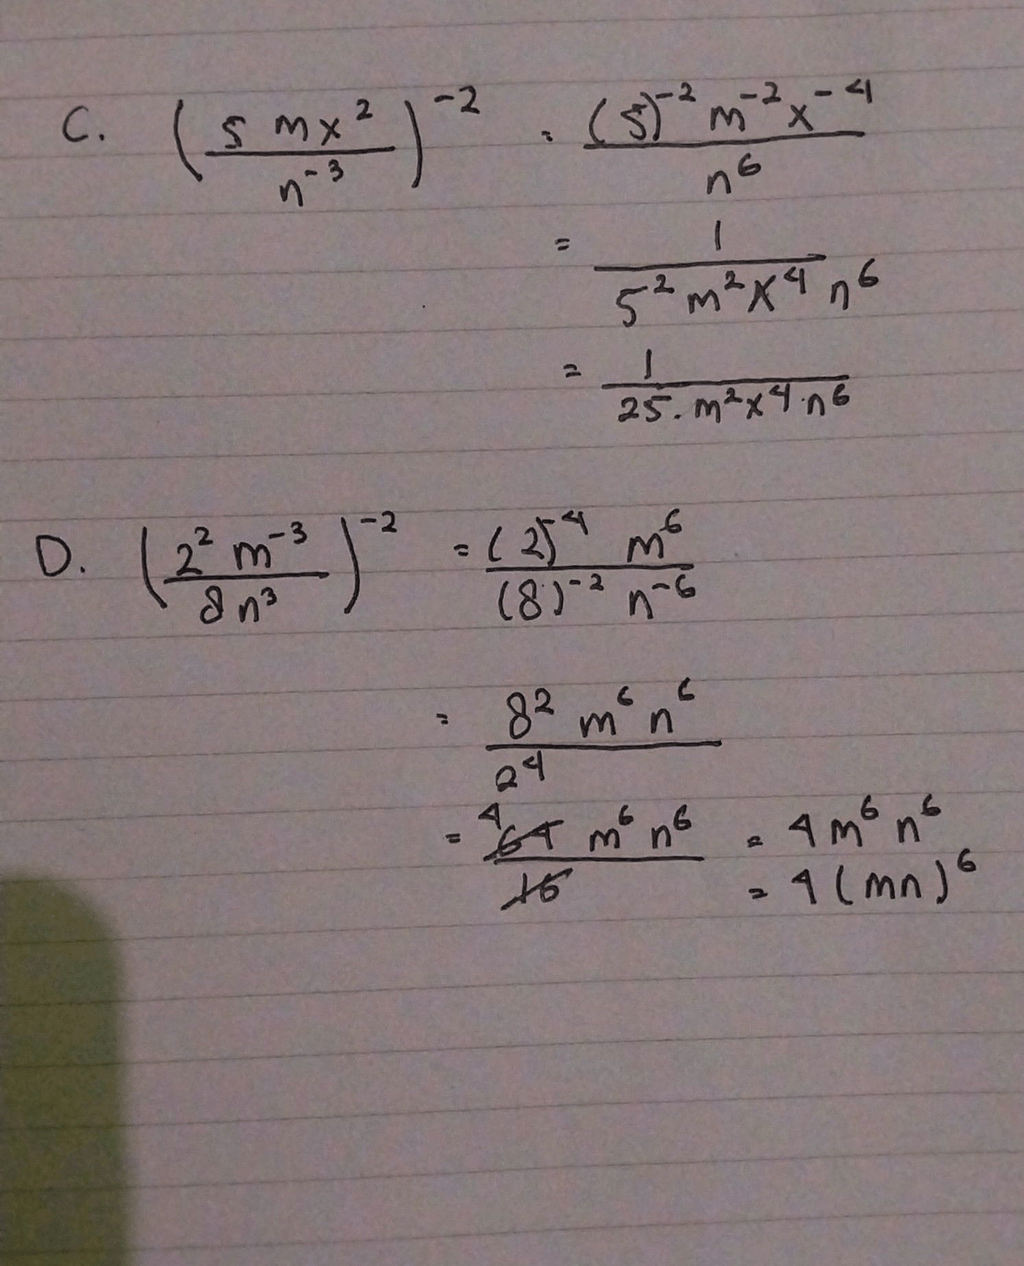 C. (5 mx² / n⁻³)⁻² = (5)⁻² m⁻² x⁻⁴ / n⁶
= 1 / 5² m² x⁴ n⁶
= 1 / 25. m² x⁴. n⁶
D. (2² m⁻³ / 8n³)⁻² = (2)⁻⁴ m⁶ / (8)⁻² n⁻⁶
= 8² m⁶ n⁶ / 2⁴
= ⁴64 m⁶ n⁶ / 16 = 4 m⁶ n⁶
= 4 (mn)⁶